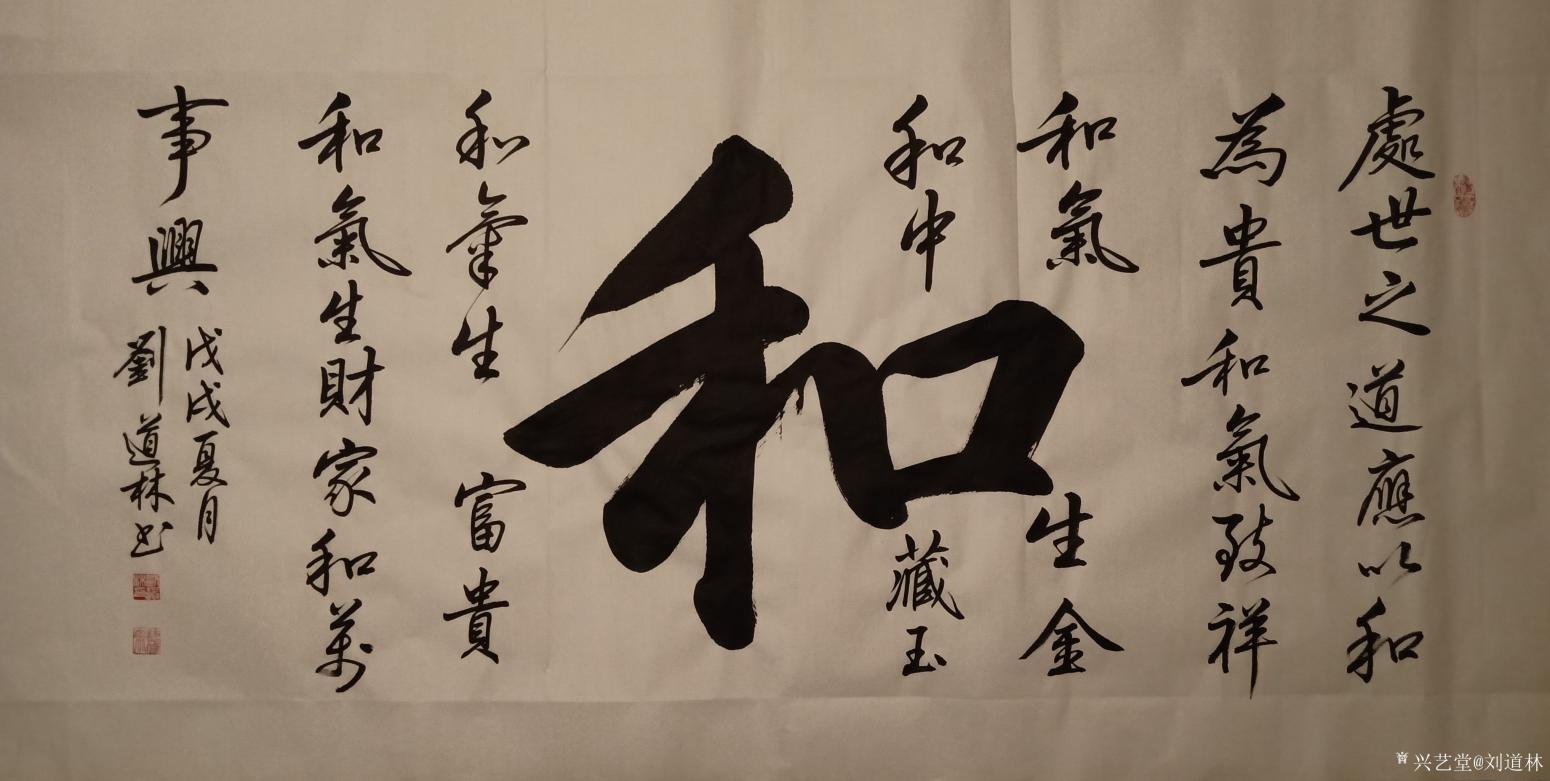 處世之道應以和
為貴和氣致祥
和氣生金
和中藏玉
和
和氣生富貴
和氣生財家和萬
事興
戊戌夏月
劉道林书
兴艺堂@刘道林